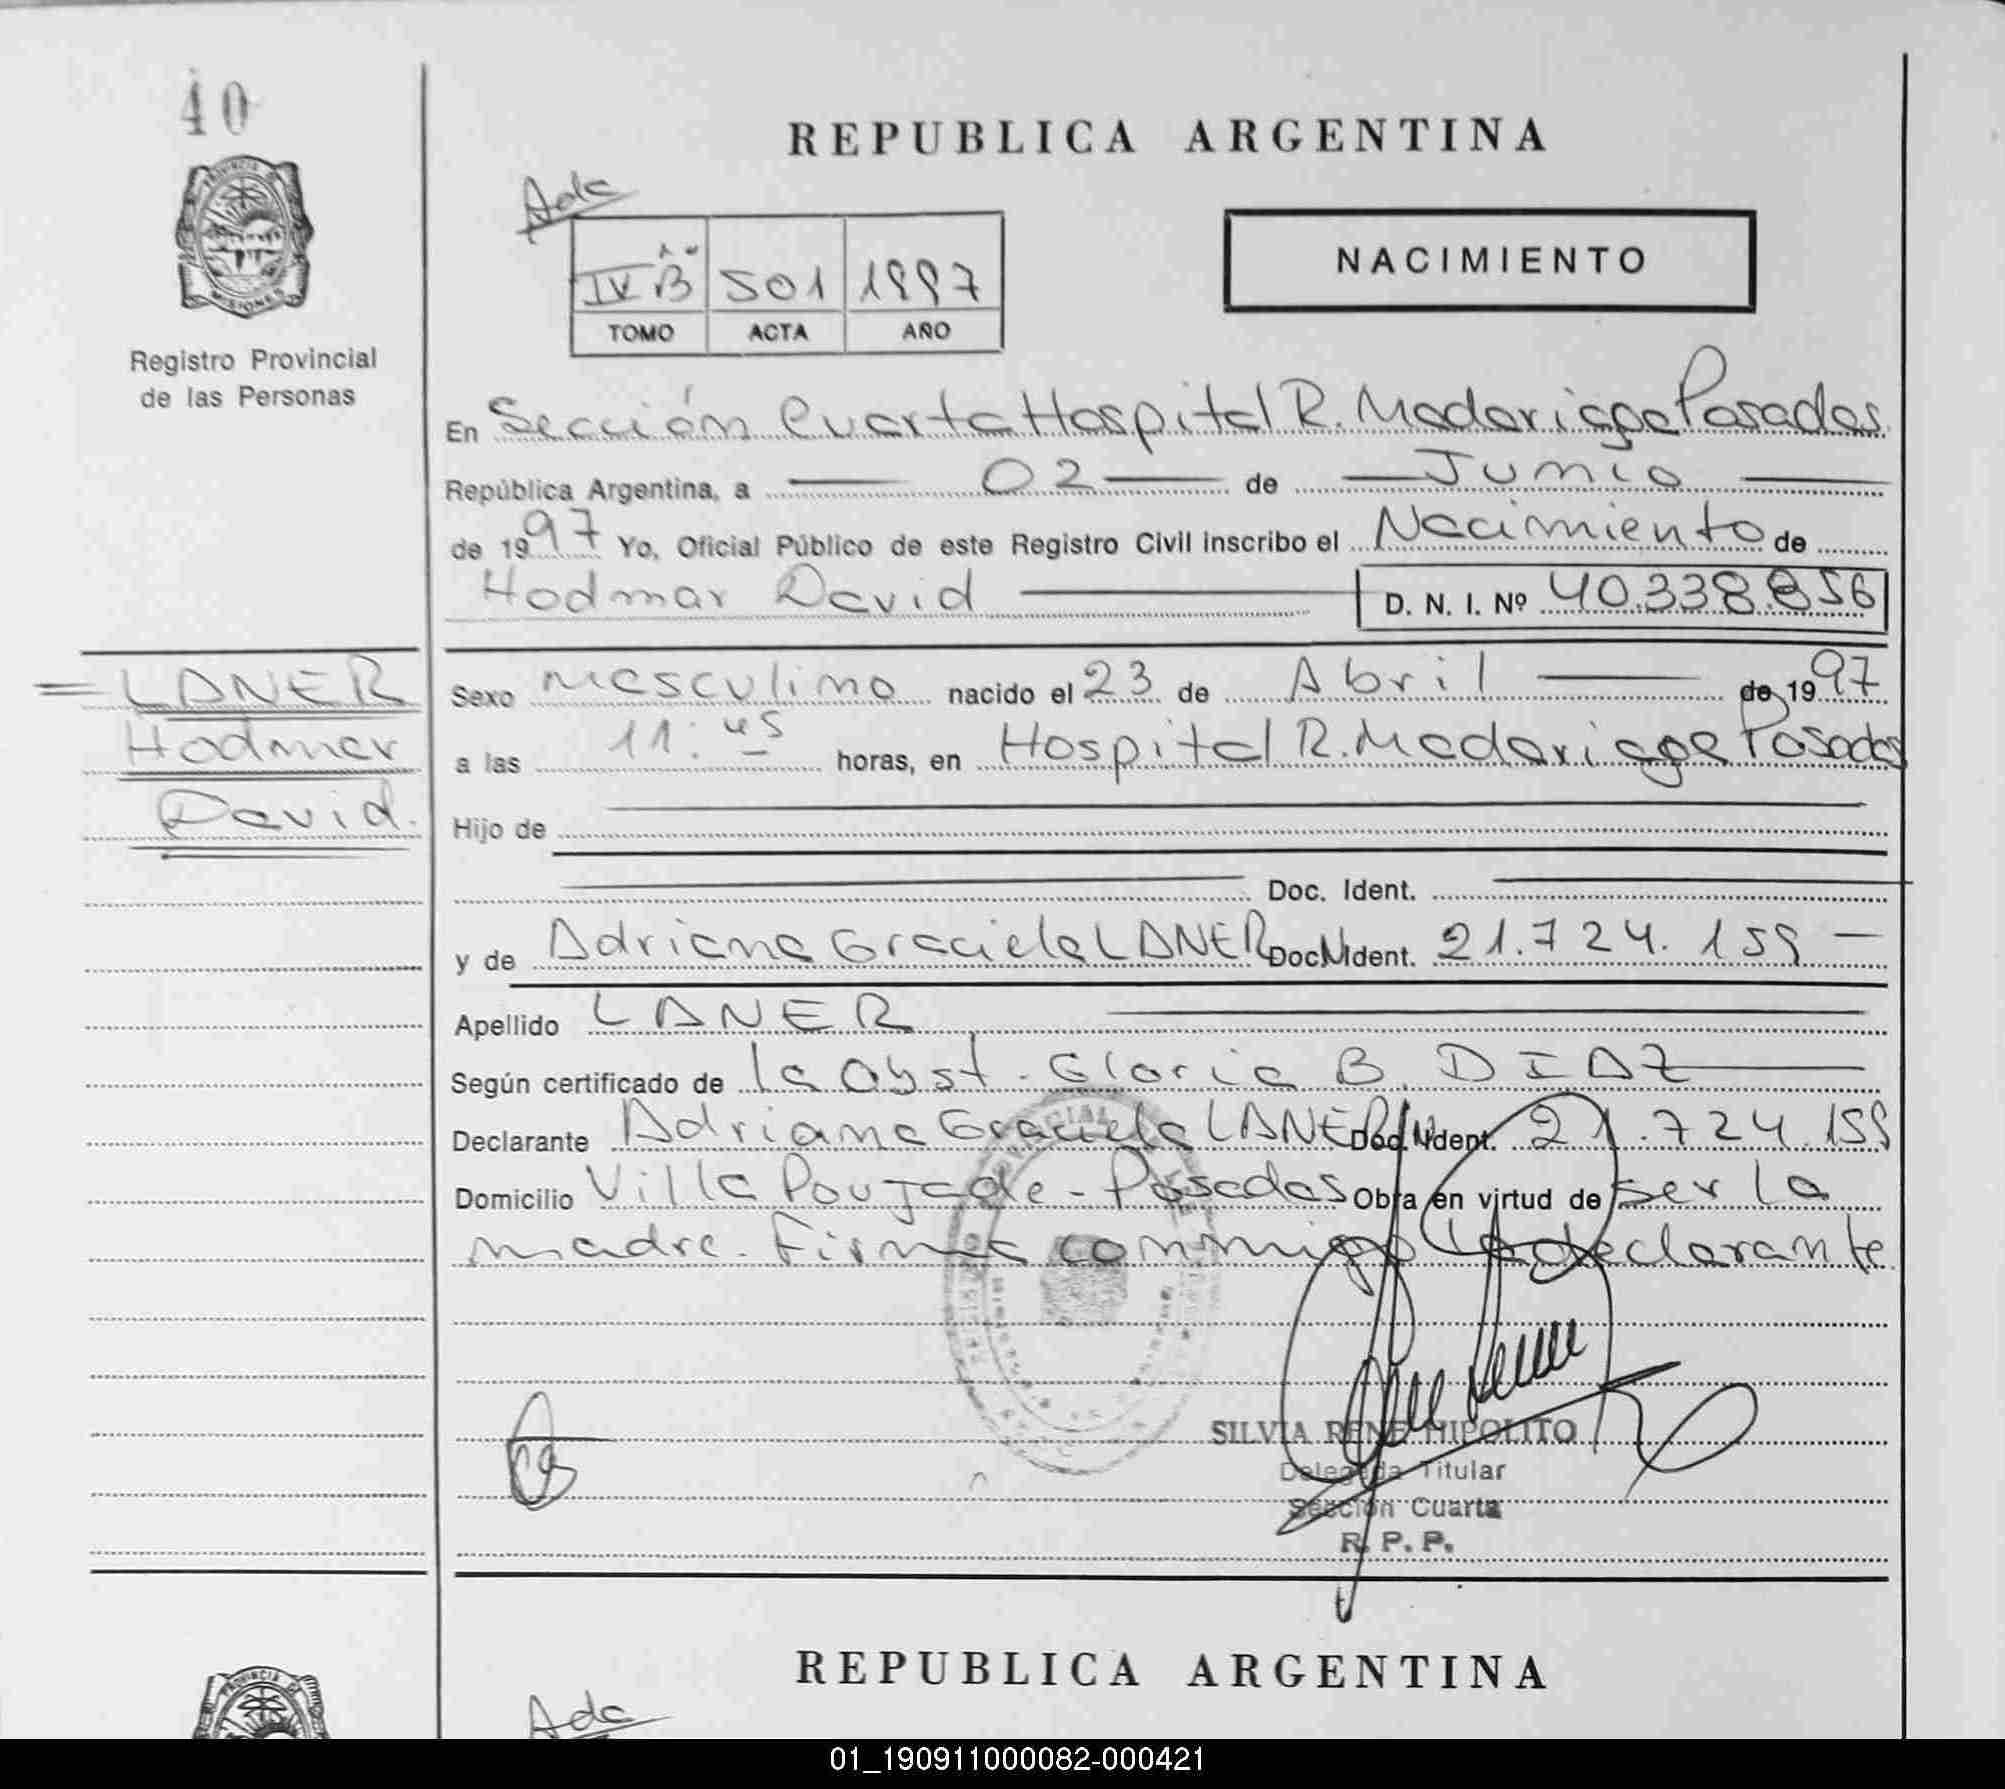 40
PROVINCIA DE
MISIONES
Registro Provincial
de las Personas
REPUBLICA ARGENTINA
Ada
IV B 501 1997
TOMO ACTA AÑO
NACIMIENTO
En Sección Cuarta Hospital R. Madariaga Posadas
República Argentina, a 02 de Junio
de 1997 Yo, Oficial Público de este Registro Civil inscribo el Nacimiento de
Hodmar David D. N. I. Nº 40.338.856
LANER
Hodmar
David.
Sexo masculino nacido el 23 de Abril de 1997
a las 11:45 horas, en Hospital R. Madariaga Posadas
Hijo de
Doc. Ident.
y de Adriana Graciela LANER Doc. Ident. 21.724.159
Apellido LANER
Según certificado de la Obst. Gloria B. DIAZ
Declarante Adriana Graciela LANER Doc. Ident. 21.724.159
Domicilio Villa Poujade - Posadas Obra en virtud de ser la
madre. Firma conmigo la declarante
SILVIA RENE HIPOLITO
Delegada Titular
Sección Cuarta
R. P. P.
REPUBLICA ARGENTINA
PROVINCIA DE
Ada
01_190911000082-000421